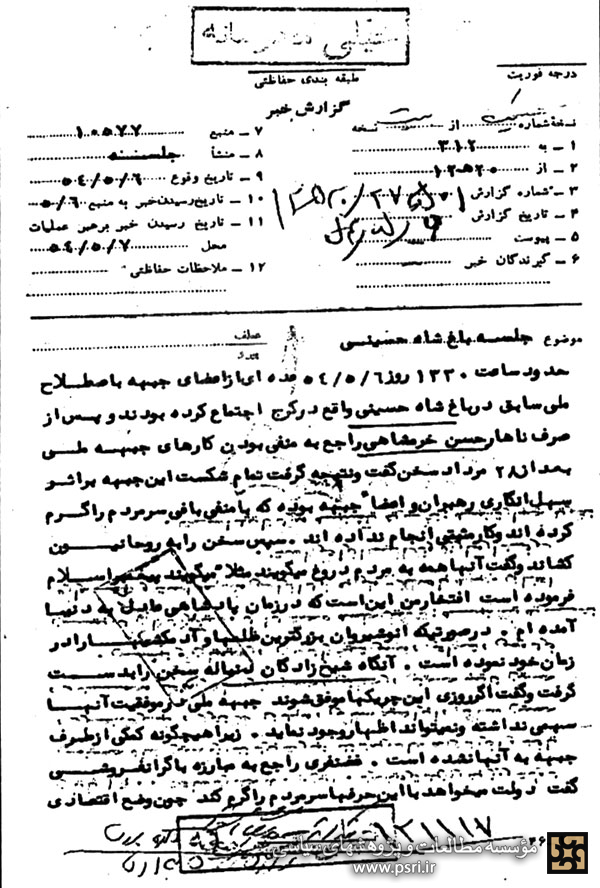 خیلی محرمانه
طبقه بندی حفاظتی
درجه فوریت
گزارش خبر
نسخهٔ شماره از نسخه
۱ ـ به ۳۱۲
۲ ـ از
۳ ـ شماره گزارش
۴ ـ تاریخ گزارش
۵ ـ پیوست
۶ ـ گیرندگان خبر
۷ ـ منبع ۱۰۵۷۷
۸ ـ منشأ جلسه
۹ ـ تاریخ وقوع ۵۴/۵/۶
۱۰ ـ تاریخ رسیدن خبر به منبع ۵/۶
۱۱ ـ تاریخ رسیدن خبر برهبر عملیات
محل ۵۴/۵/۷
۱۲ ـ ملاحظات حفاظتی
موضوع جلسه باغ شاه حسینی
عطف
حدود ساعت ۱۳۳۰ روز ۵۴/۵/۶ عده ای از اعضای جبهه باصطلاح
ملی سابق در باغ شاه حسینی واقع در کرج اجتماع کرده بودند و پس از
صرف ناهار حسن خرمشاهی راجع به منفی بودن کارهای جبهه ملی
بعد از ۲۸ مرداد سخن گفت و نتیجه گرفت تمام شکست این جبهه بر اثر
سهل انگاری رهبران و اعضاء جبهه بوده که با منفی بافی سر مردم را گرم
کرده اند و کار مثبتی انجام نداده اند . سپس سخن را به روحانیون
کشاند و گفت آنها همه به مردم دروغ میگویند مثلا" میگویند پیغمبر اسلام
فرموده است افتخار من این است که در زمان پادشاهی عادل به دنیا
آمده ام . در صورتیکه انوشیروان بزرگترین ظلمها و آدمکشیها را در
زمان خود نموده است . آنگاه شیخ زادگان دنباله سخن را بدست
گرفت و گفت اگر روزی این چریکها موفق شوند جبهه ملی در موفقیت آنها
سهمی نداشته و نمیتواند اظهار وجود نماید . زیرا هیچگونه کمکی از طرف
جبهه به آنها نشده است . غضنفری راجع به مبارزه با گرانفروشی
گفت دولت میخواهد با این حرفها سر مردم را گرم کند چون وضع اقتصادی
۱۲۱۱۱۷
مؤسسه مطالعات و پژوهشهای سیاسی
www.psri.ir